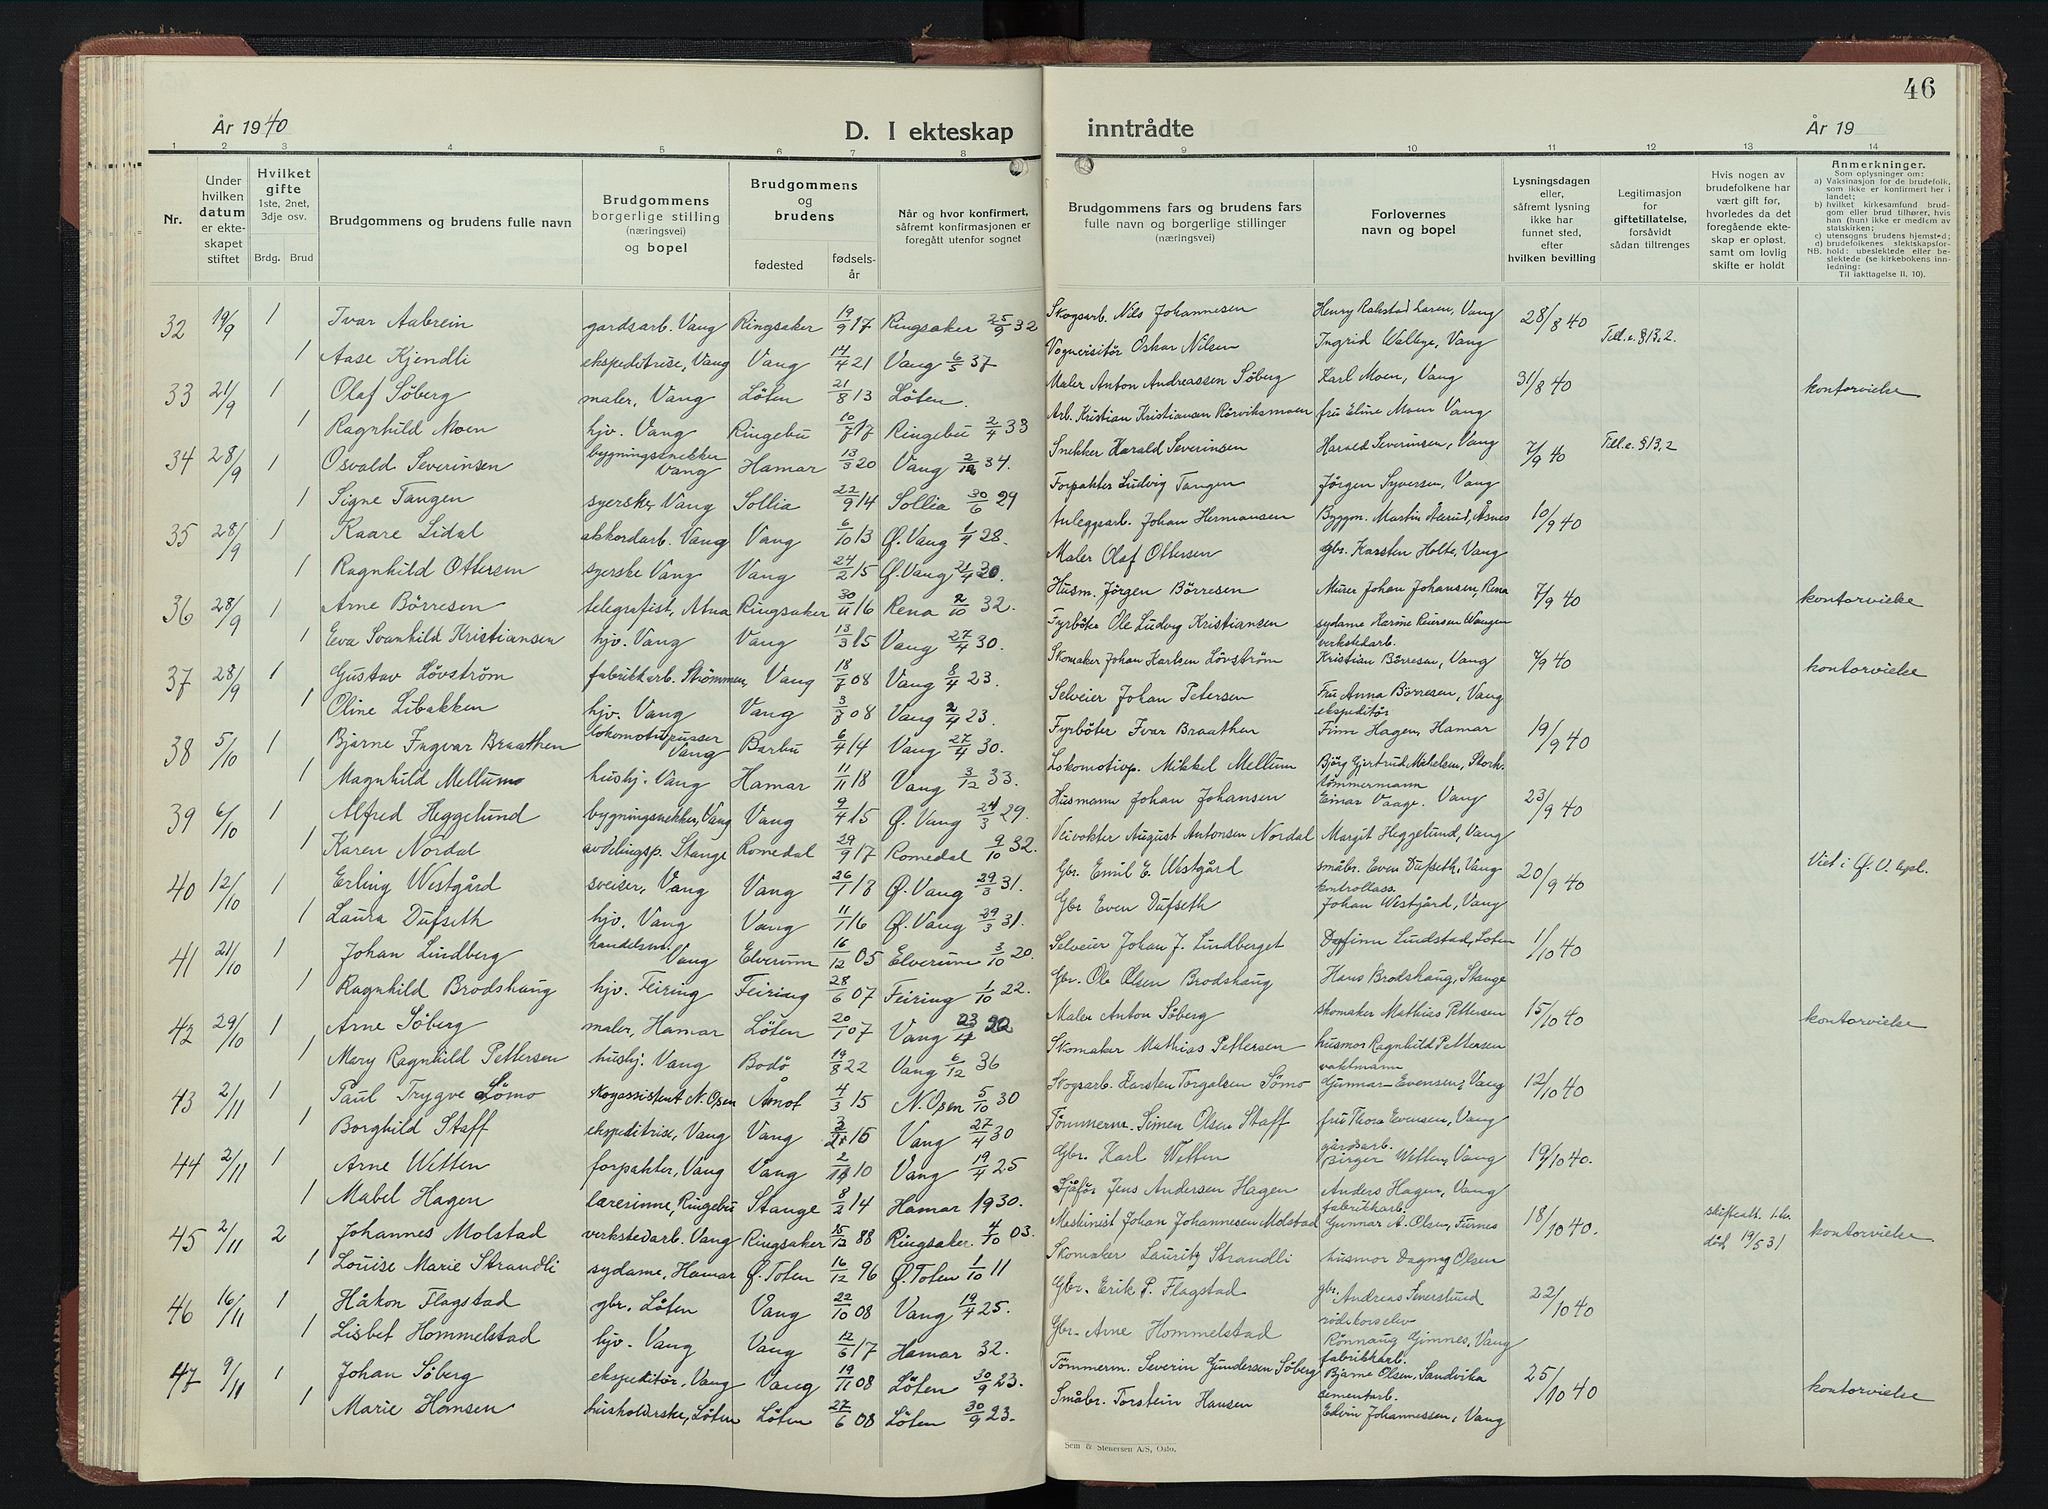 46
År 1940
D. I ekteskap
inntrådte
År 19
1 2 3 4 5 6 7 8 9 10 11 12 13 14
Nr.
Under hvilken datum er ekteskapet stiftet
Hvilket gifte 1ste, 2net, 3dje osv.
Brdg. Brud
Brudgommens og brudens fulle navn
Brudgommens borgerlige stilling (næringsvei) og bopel
Brudgommens og brudens
fødested
fødselsår
Når og hvor konfirmert, såfremt konfirmasjonen er foregått utenfor sognet
Brudgommens fars og brudens fars fulle navn og borgerlige stillinger (næringsvei)
Forlovernes navn og bopel
Lysningsdagen eller, såfremt lysning ikke har funnet sted, efter hvilken bevilling
Legitimasjon for giftetillatelse, forsåvidt sådan tiltrenges
Hvis nogen av brudefolkene har vært gift før, hvorledes da det foregående ekteskap er opløst, samt om lovlig skifte er holdt
Anmerkninger.
Som oplysninger om:
a) Vaksinasjon for de brudefolk, som ikke er konfirmert her i landet;
b) hvilket kirkesamfund brudgom eller brud tilhører, hvis han (hun) ikke er medlem av statskirken;
c) utensogns brudens hjemsted;
d) brudefolkenes slektskapsforhold; ubeslektede eller beslektede (se kirkebokens innledning:
NB.
Til iakttagelse II, 10).
32 19/9 1 Ivar Aabrein gardsarb. Vang Ringsaker 19/9 17 Ringsaker 25/9 32 Skogsarb. Nils Johannesen Henry Rakstad Larsen, Vang 28/8 40 Till. e. §13,2.
1 Aase Kjendli ekspeditrise, Vang Vang 14/4 21 Vang 6/5 37 Vognvisitør Oskar Nilsen Ingrid Vang
33 21/9 1 Olaf Söberg maler, Vang Löten 21/8 13 Löten. Maler Anton Andreassen Söberg Karl Moen, Vang 31/8 40 kontorvielse
1 Ragnhild Moen hjv. Vang Ringebu 10/7 17 Ringebu 2/4 33 Arb. Kristian Kristiansen Rörviksmoen fru Eline Moen Vang
34 28/9 1 Osvald Severinsen bygningssnekker Vang Hamar 13/3 20 Vang 2/12 34. Snekker Harald Severinsen Harald Severinsen, Vang 7/9 40 Till. e. §13,2
1 Signe Tangen syerske, Vang Sollia 22/9 14 Sollia 30/6 29 Forpakter Ludvig Tangen Jörgen Syversen, Vang
35 28/9 1 Kaare Lidal akkordarb. Vang Vang 6/10 13 Ø. Vang 1/4 28. Anleggsarb. Johan Hermansen Byggm. Martin Åsnes 10/9 40
1 Ragnhild Ottersen syerske Vang Vang 24/2 15 Ø. Vang 21/4 30. Maler Olaf Ottersen Gbr. Karsten Holte, Vang
36 28/9 1 Arne Börresen telegrafist, Atna Ringsaker 30/11 16 Rena 2/10 32. Husm. Jörgen Börresen Murer Johan Johansen, Rena 7/9 40 kontorvielse
1 Eva Svanhild Kristiansen hjv. Vang Vang 13/3 15 Vang 27/4 30. Fyrböter Ole Ludvig Kristiansen sydame
37 28/9 1 Gustav Lövström fabrikkarb. Strömmen, Vang 18/7 08 Vang 8/4 23. Skomaker Johan Karlsen Lövström verkstedarb. Kristian Börresen, Vang 7/9 40 kontorvielse
1 Oline Libakken hjv. Vang Vang 3/8 08 Vang 2/4 23. Selveier Johan Petersen Fru Anna Börresen, Vang
38 5/10 1 Bjarne Ingvar Braathen lokomotivpusser Vang Barbu 6/4 14 Vang 27/4 30. Fyrböter Ivar Braathen ekspeditör Finn Hagen, Hamar 19/9 40
1 Magnhild Mellumo hushj. Vang Hamar 11/11 18 Vang 3/12 33. Lokomotivp. Mikkel Mellum Björg Gjertrud Mikelsen, Stork.
39 6/10 1 Alfred Heggelund bygningsnekker, Vang Vang 9/4 15 Ø. Vang 24/3 29. Husmann Johan Johansen tömmermann Einar Vaage, Vang 23/9 40
1 Karen Nordal avdelingsp. Stange Romedal 29/9 17 Romedal 9/10 32. Veivokter August Antonsen Nordal Margit Heggelund, Vang
40 12/10 1 Erling Westgård sveiser, Vang Vang 26/1 18 Ø. Vang 29/3 31. Gbr. Emil E. Westgård småbr. Even Dufseth, Vang 20/9 40 Viet i Ø. V. kpl.
1 Laura Dufseth hjv. Vang Vang 11/1 16 Ø. Vang 29/3 31. Gbr Even Dufseth kontrollass. Johan Westgård, Vang
41 21/10 1 Johan Lindberg handelsm. Vang Elverum 16/12 05 Elverum 3/10 20. Selveier Johan J. Lindberget Dagfinn Lindstad, Loten 1/10 40
1 Ragnhild Brodshaug hjv. Feiring Feiring 28/6 07 Feiring 1/10 22. Gbr. Ole Olsen Brodshaug Hans Brodshaug, Stange
42 29/10 1 Arne Söberg maler, Hamar Löten 20/1 07 Vang 23/4 22 Maler Anton Söberg skomaker Mathias Pettersen 15/10 40 kontorvielse
1 Mary Ragnhild Pettersen hushj. Vang Bodö 19/8 22 Vang 6/12 36 Skomaker Mathias Pettersen husmor Ragnhild Pettersen
43 2/11 1 Paul Trygve Lömo skogassistent N. Osen Åmot 4/3 15 N. Osen 5/10 30 Skogsarb. Karsten Torgalsen Lömo vaktmann Gunnar Evensen, Vang 12/10 40
1 Borghild Staff ekspeditrise, Vang Vang 15 Vang 27/4 30 Tömmerm. Simen Olsen Staff fru Thora Evensen, Vang
44 2/11 1 Arne Wetten forpakter, Vang Vang 2/11 10 Vang 19/4 25 Gbr. Karl Wetten gårdsarb. Birger Wetten, Vang 19/10 40.
1 Mabel Hagen lærerinne, Ringebu Stange 8/2 14 Hamar 1930. Sjåför Jens Andersen Hagen Anders Hagen, Vang
45 2/11 2 Johannes Molstad verkstedarb. Vang Ringsaker 15/12 88 Ringsaker. 4/10 03. Maskinist Johan Johannesen Molstad fabrikkarb. Gunnar A. Olsen, Furnes 18/10 40. skifteatt. 1. hr. död 19/5 31 kontorvielse
1 Louise Marie Strandli sydame, Hamar Ø. Toten 16/12 96 Ø. Toten 1/10 11 Skomaker Lauritz Strandli husmor Dagny Olsen
46 16/11 1 Håkon Flagstad gbr. Löten Vang 22/10 08 Vang 19/4 25. Gbr. Erik P. Flagstad gbr. Andreas 22/10 40
1 Lisbet Hommelstad hjv. Vang Vang 12/6 17 Hamar 32. Gbr. Arne Hommelstad Rönnaug Gimnes, Vang
47 9/11 1 Johan Söberg ekspeditör, Vang Vang 19/11 08 Löten 30/9 23. Tömmerm. Severin Gundersen Söberg fabrikkarb. Bjarne Olsen, Sandvika 25/10 40 kontorvielse
1 Marie Hansen husholderske, Löten Löten 27/6 08 Löten 30/9 23. Småbr. Torstein Hansen cementarb. Edvin Johannessen, Vang
Sem & Stenersen A/S, Oslo.